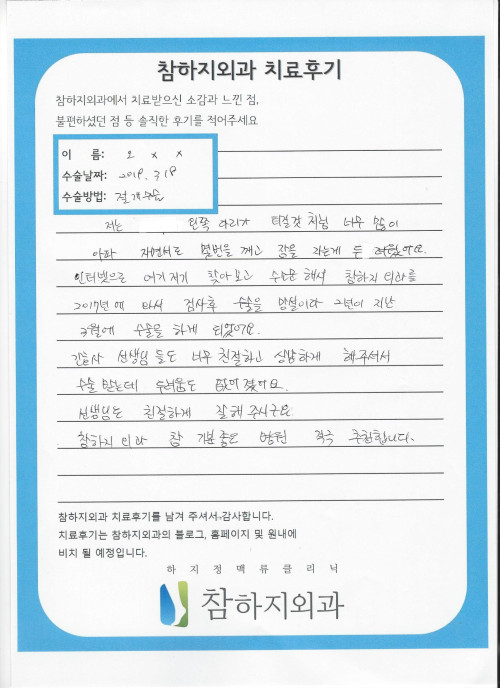 참하지외과 치료후기
참하지외과에서 치료받으신 소감과 느낀 점,
불편하셨던 점 등 솔직한 후기를 적어주세요
이 름: 오 x x
수술날짜: 2019. 3 18
수술방법: 절개수술
저는 왼쪽 다리가 터질것 처럼 너무 많이
아파 자면서도 몇번을 깨고 잠을 자는게
인터넷으로 여기저기 찾아보고 해서 참하지외과를
2017년에 와서 검사후 수술을 2년이 지난
3월에 수술을 하게 되었어요.
간호사 선생님들도 너무 친절하고 상냥하게 해주셔서
수술 받는데 두려움도 없어 졌어요.
선생님도 친절하게 잘해주시구요
참하지외과 참 기분좋은 병원 적극 추천합니다.
참하지외과 치료후기를 남겨 주셔서 감사합니다.
치료후기는 참하지외과의 블로그, 홈페이지 및 원내에
비치 될 예정입니다.
하지정맥류클리닉
참하지외과